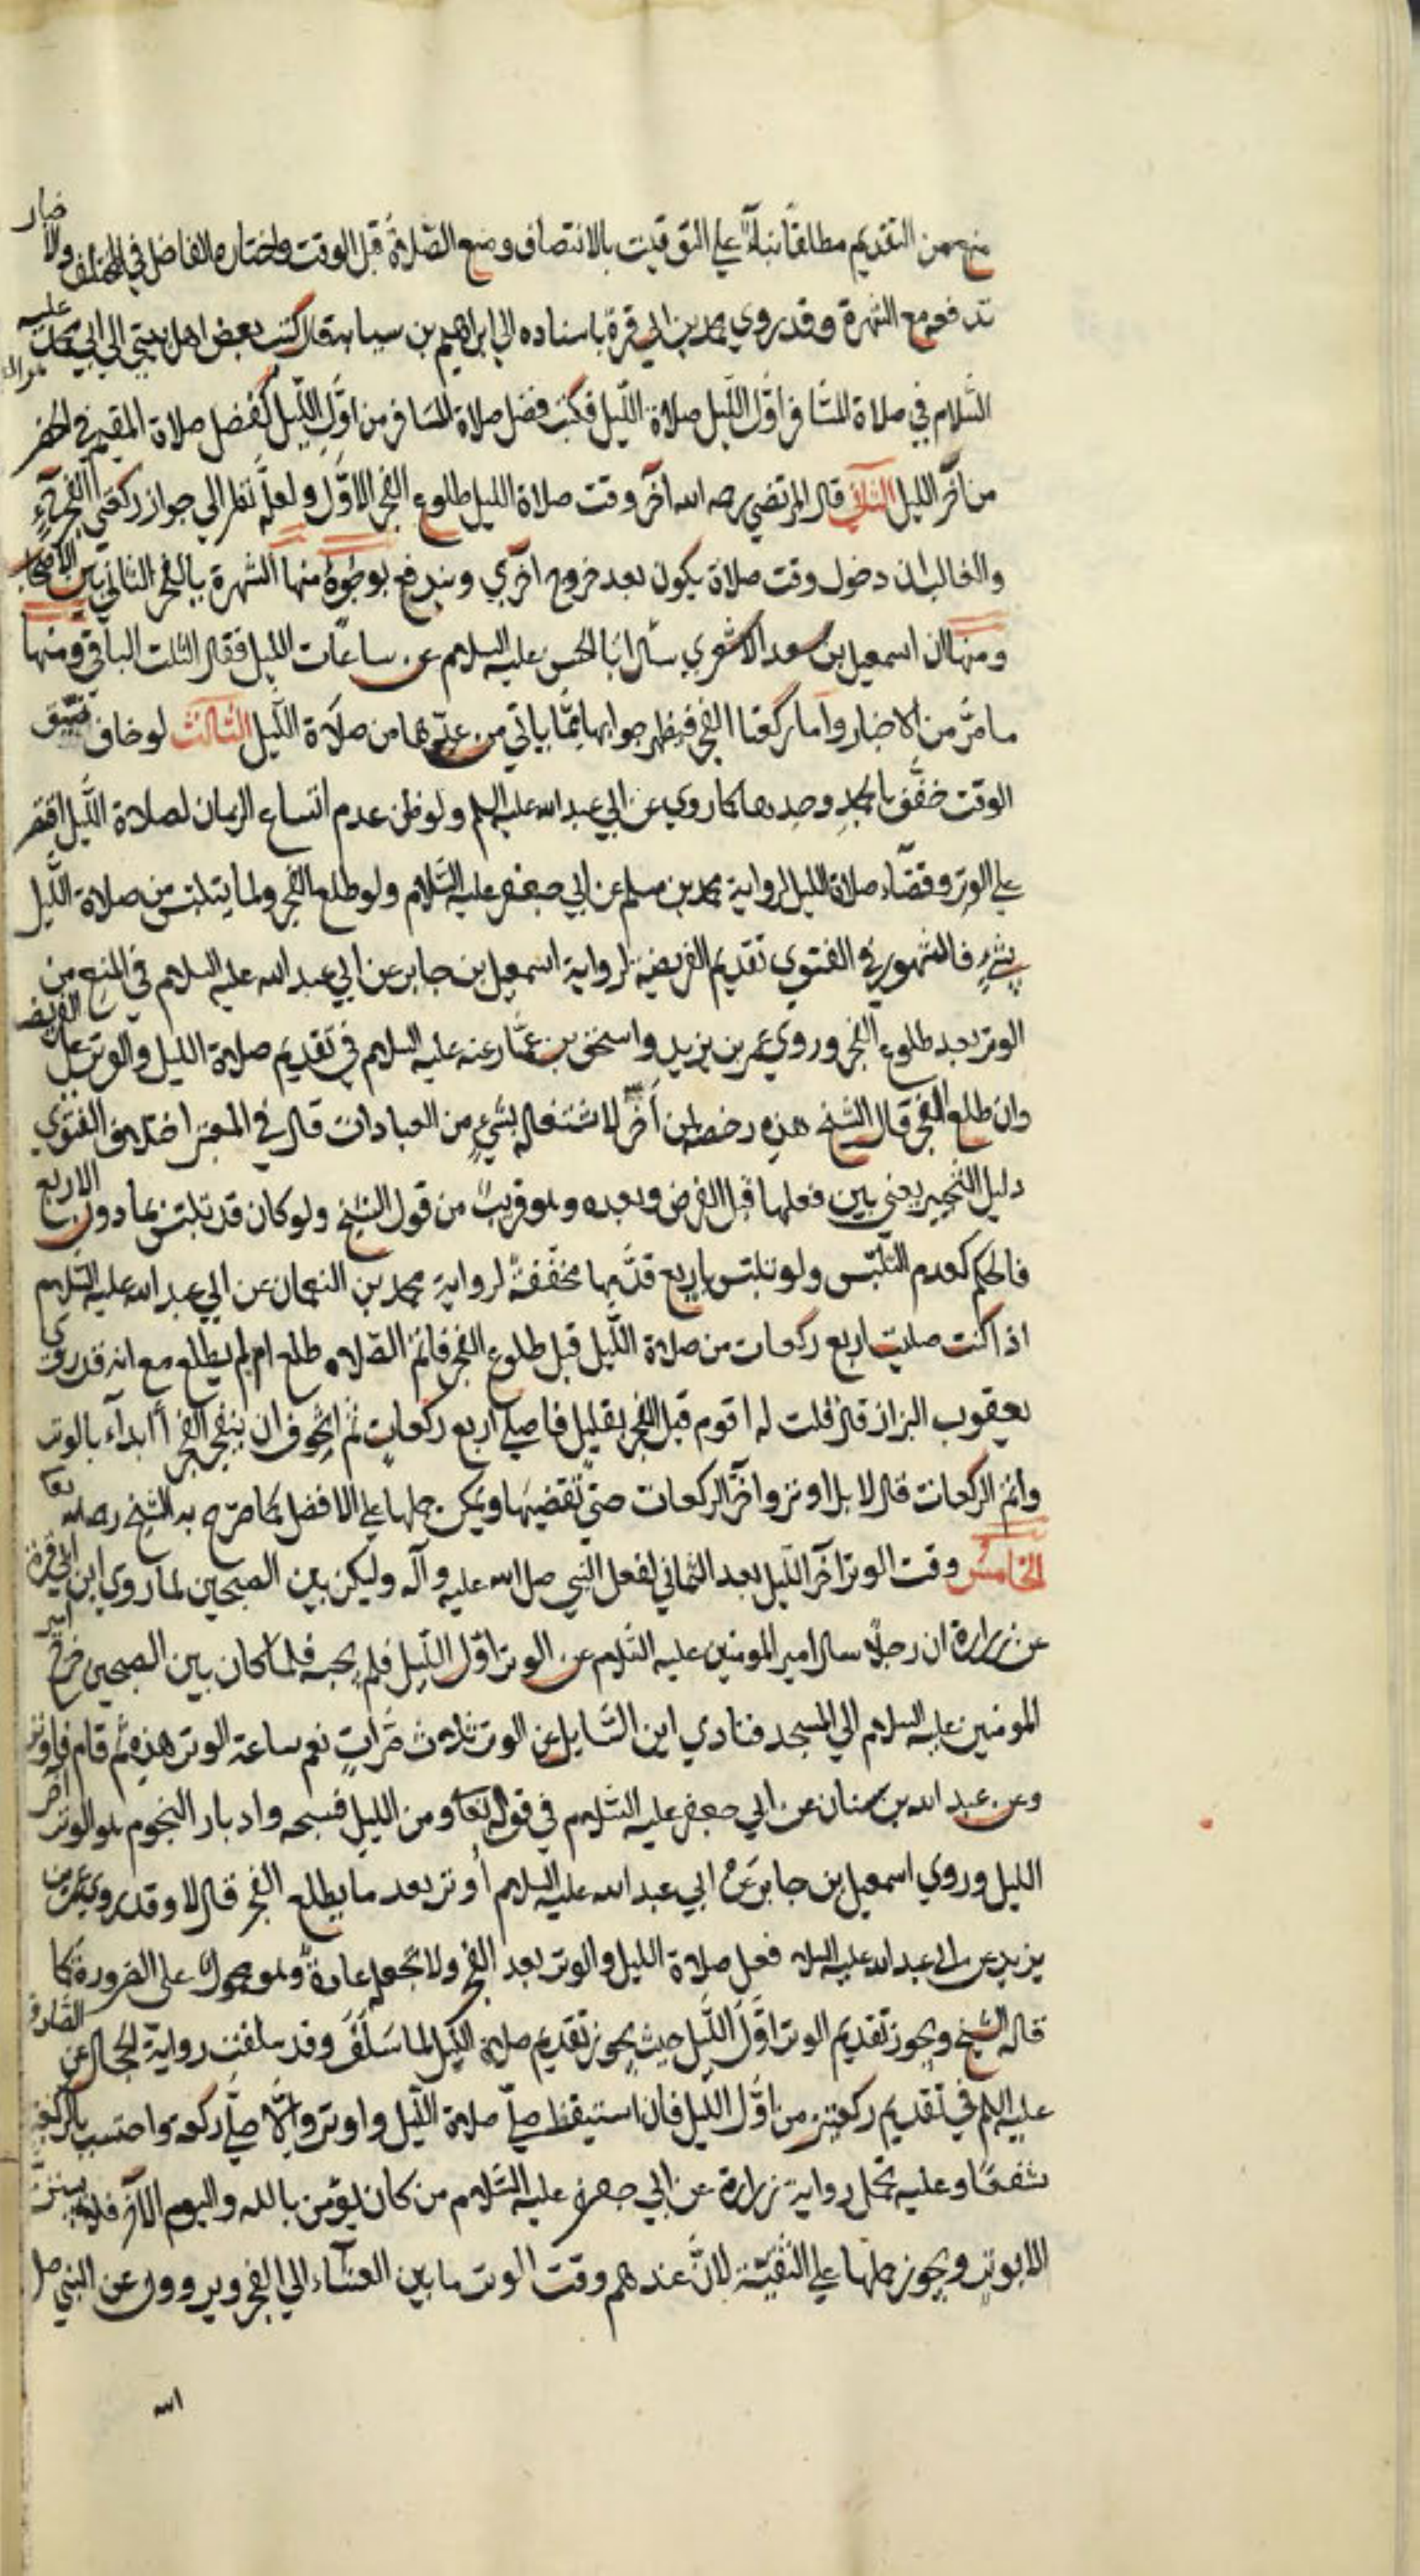 منع من التقديم مطلقا بناء علي التوقيت بالانتصاف ومنع الصلاة قبل الوقت واختاره الفاضل في المختلف والاخبار
تدفعه مع الشهرة وقد روي محمد بن ابي قرة باسناده الي ابراهيم بن سيابة قال كتب بعض اهل بيتي الي ابي محمد عليه
السلام في صلاة المسافر اول الليل صلاة الليل فكتب فضل صلاة المسافر من اول الليل كفضل صلاة المقيم في الحضر
من آخر الليل الثاني قال المرتضي رحمه الله آخر وقت صلاة الليل طلوع الفجر الاول ولعله نظر الي جواز ركعتي الفجر
والغالب ان دخول وقت صلاة يكون بعد خروج اخري ويندفع بوجوه منها الشهرة بالفجر الثاني بين الاصحاب
ومنها ان اسمعيل بن سعد الاشعري سال ابا الحسن عليه السلام عن ساعات الليل فقال الثلث الباقي ومنها
ما مر من الاخبار واما ركعتا الفجر فيظهر جوابها مما ياتي من عدهما من صلاة الليل الثالث لو خاف ضيق
الوقت خفف بالحمد وحدها كما روي عن ابي عبد الله عليه السلم ولو ظن عدم اتساع الزمان لصلاة الليل اقتصر
علي الوتر وقضاء صلاة الليل لرواية محمد بن مسلم عن ابي جعفر عليه السلام ولو طلع الفجر ولما يتلبس من صلاة الليل
بشيء فالمشهور في الفتوي تقديم الفريضة لرواية اسمعيل بن جابر عن ابي عبد الله عليه السلام في المنع من
الوتر بعد طلوع الفجر وروي عمر بن يزيد واسحق بن عمار عنه عليه السلام في تقديم صلاة الليل والوتر علي الفريضة
وان طلع الفجر قال الشيخ هذه رخصة لمن أخر لاشتغاله بشيء من العبادات قال في المعتبر اختلاف الفتوي
دليل التخيير يعني بين فعلها قبل الفرض وبعده وهو قريب من قول الشيخ ولو كان قد تلبس بما دون الاربع
فالحكم كعدم التلبس ولو تلبس باربع قدمها مخففة لرواية محمد بن النعمان عن ابي عبد الله عليه السلام
اذا كنت صليت اربع ركعات من صلاة الليل قبل طلوع الفجر فاتم الصلاة طلع ام لم يطلع مع انه قد روي
يعقوب البزاز قال قلت له اقوم قبل الفجر بقليل فاصلي اربع ركعات ثم اتخوف ان ينفجر الفجر أابدأ بالوتر
واتم الركعات قال لا بل اوتر واخر الركعات حتي تقضيها ويمكن حملها علي الافضل كما صرح به الشيخ رحمه الله تعا
الخامس وقت الوتر آخر الليل بعد الثماني لفعل النبي صلي الله عليه وآله وليكن بين الصبحين لما روي ابن ابي قرة
عن زرارة ان رجلا سال امير المومنين عليه السلام عن الوتر اول الليل فلم يجبه فلما كان بين الصبحين خرج امير
المومنين عليه السلام الي المسجد فنادي اين السايل عن الوتر ثلاث مرات نعم ساعة الوتر هذه ثم قام فاوتر
وعن عبد الله بن سنان عن ابي جعفر عليه السلام في قوله تعا ومن الليل فسبحه وادبار النجوم هو الوتر آخر
الليل وروي اسمعيل بن جابر عن ابي عبد الله عليه السلام أوتر بعد ما يطلع الفجر قال لا وقد روي عمر بن
يزيد عن ابي عبد الله عليه السلا فعل صلاة الليل والوتر بعد الفجر ولا تجعله عادة وهو محمول علي الضرورة كما
قاله الشيخ ويجوز تقديم الوتر اول الليل حيث يجوز تقديم صلاة الليل لما سلف وقد سلفت رواية الحجال عن الصادق
عليه السلم في تقديم ركعتين من اول الليل فان استيقظ صلي صلاة الليل واوتر والا صلي ركعة واحتسب بالركعتين
شفعا وعليه تحمل رواية زرارة عن ابي جعفر عليه السلام من كان يؤمن بالله واليوم الآخر فلا يبيتن
الا بوتر ويجوز حملها علي التقية لان عندهم وقت الوتر ما بين العشاء الي الفجر ويروون عن النبي صل
الله